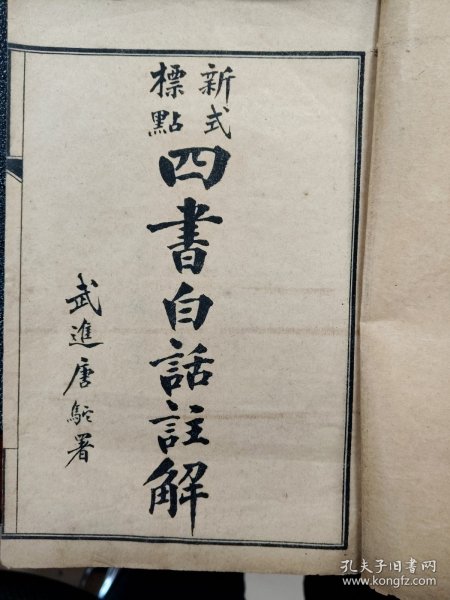 新式
標點
四書白話註解
武進唐駝署
孔夫子旧书网
www.kongfz.com